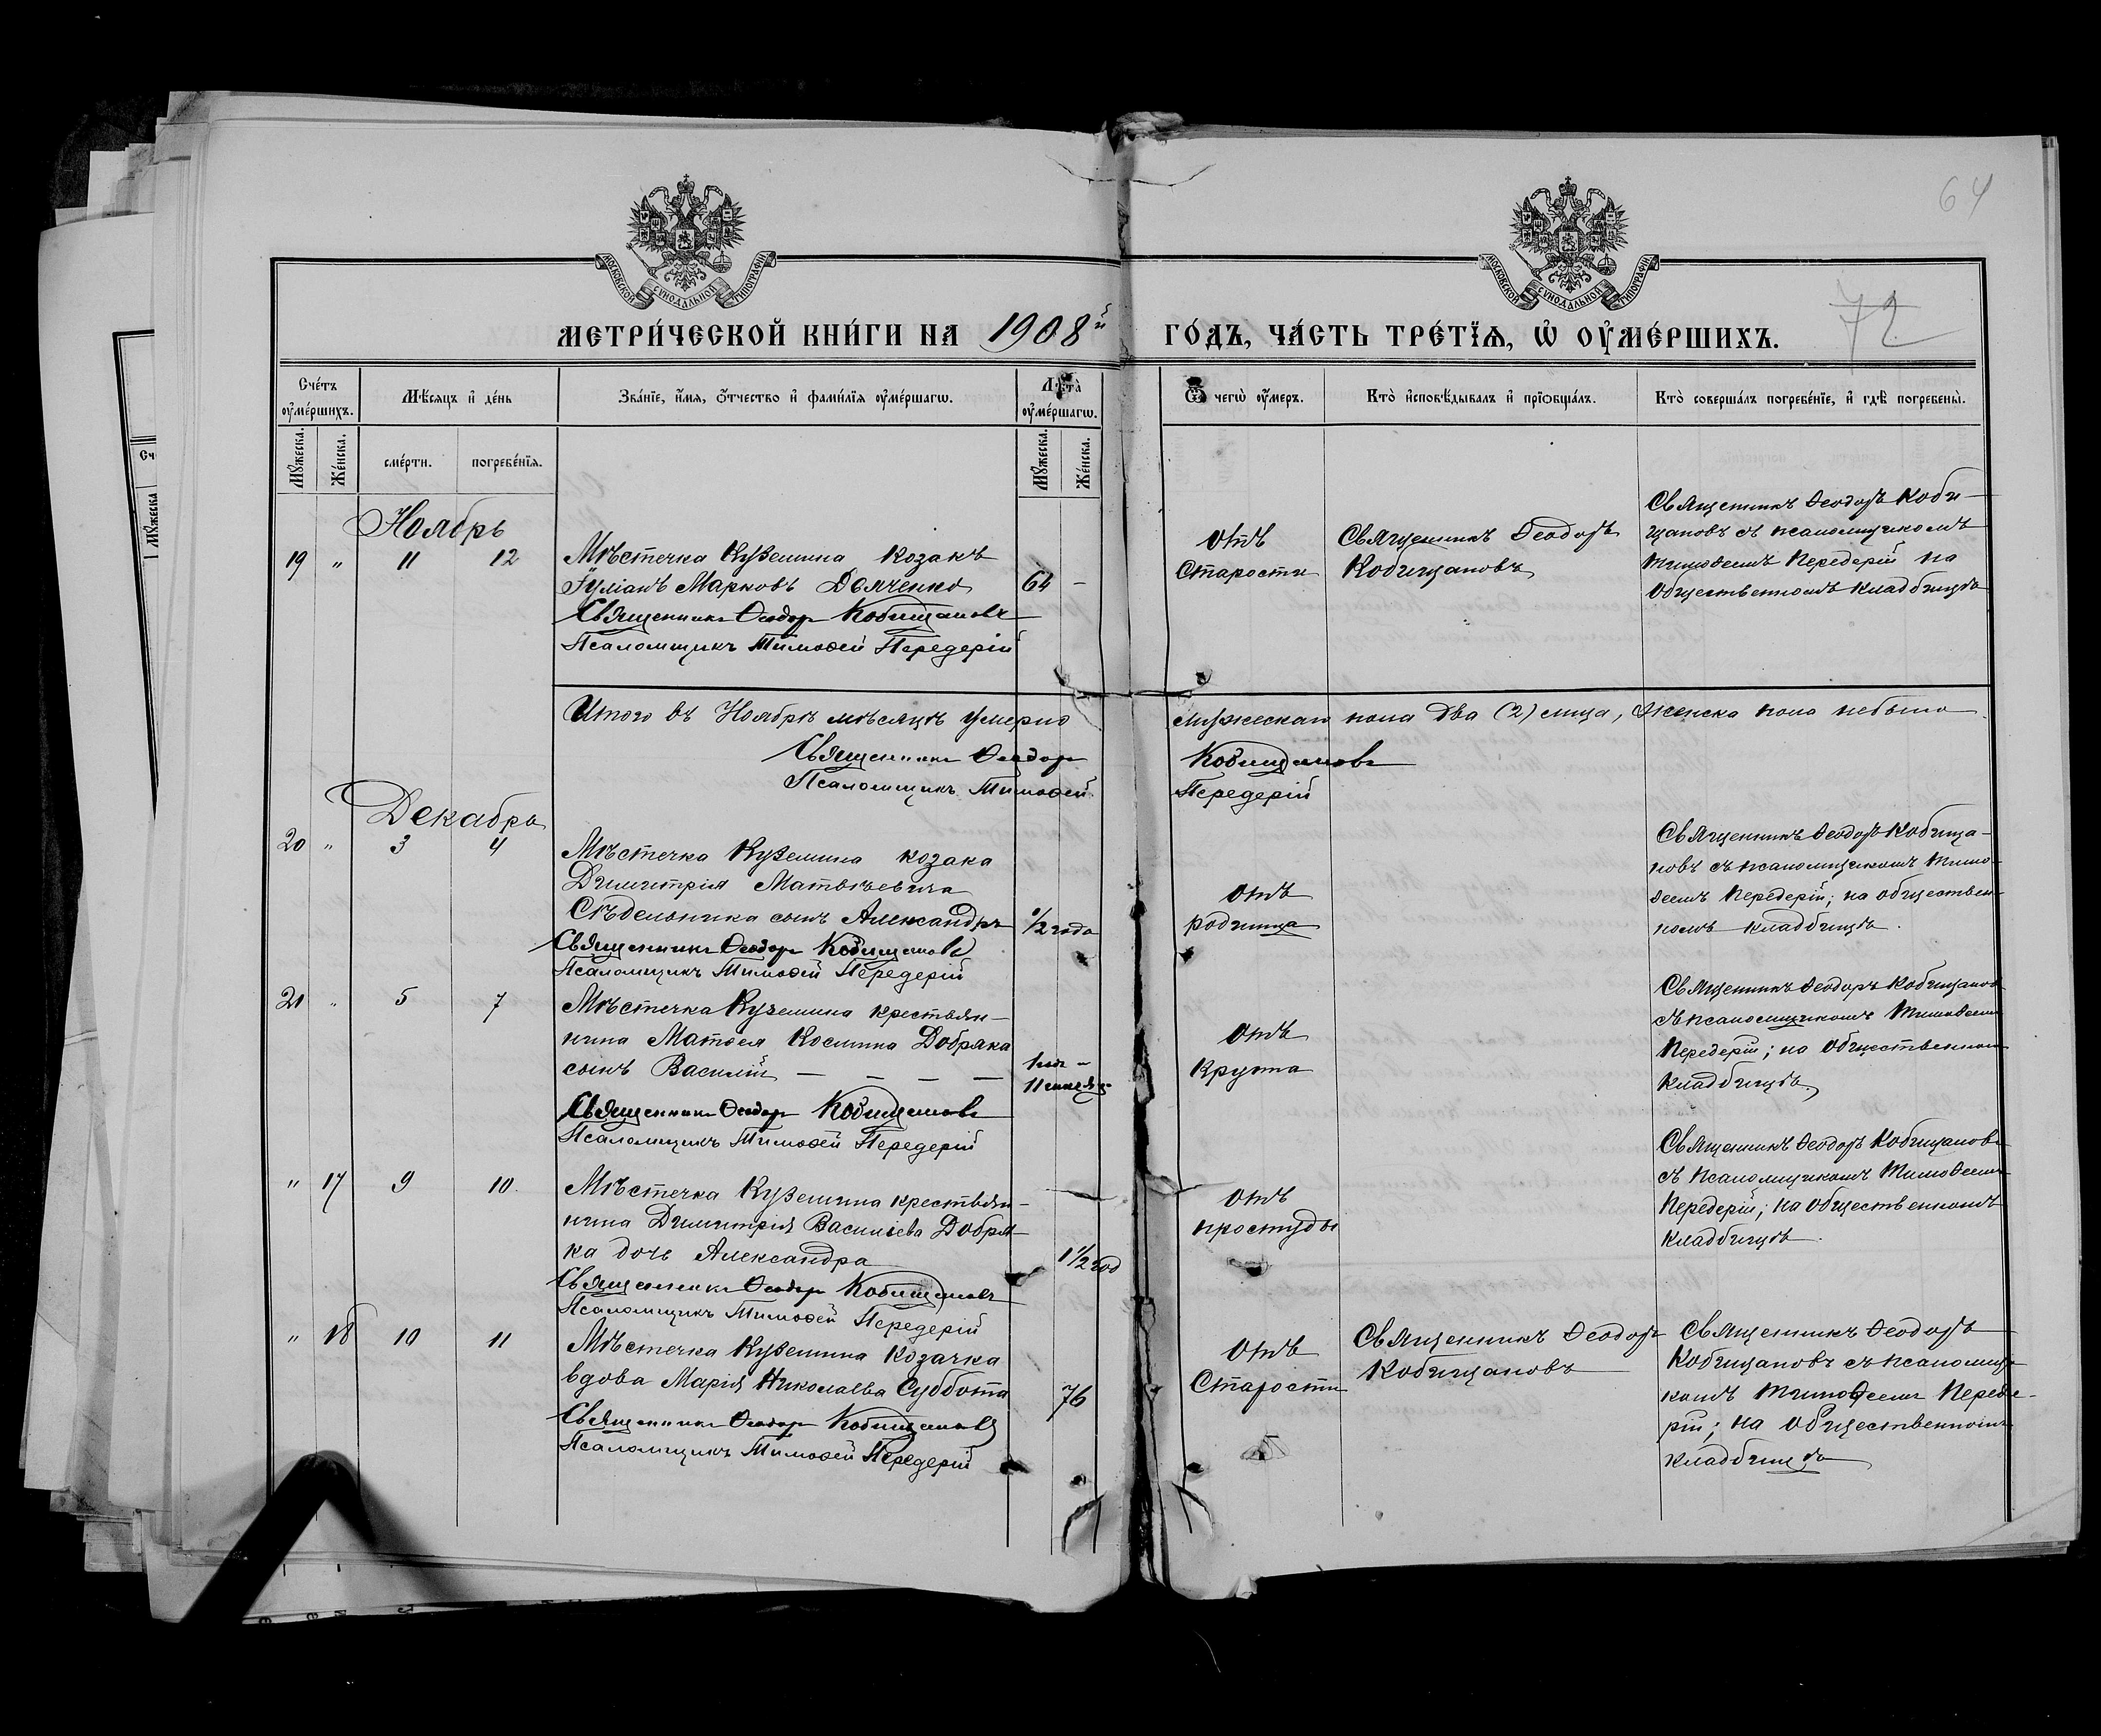 64
МОСКОВСКОЙ СѴНОДАЛЬНОЙ ТИПОГРАФІИ
МОСКОВСКОЙ СѴНОДАЛЬНОЙ ТИПОГРАФІИ
МЕТРИ́ЧЕСКОЙ КНИ́ГИ НА 1908й ГО́ДЪ, ЧА́СТЬ ТРЕ́ТЇѦ, Ѡ҆ ОУ҆МЕ́РШИХЪ.
72
Сче́тъ оу҆ме́ршихъ.
Мѣ́сяцъ и҆ де́нь
Зва́нїе, и҆́мя, ѻ҆́тчество и҆ фами́лїя оу҆ме́ршагѡ.
Лѣ́та оу҆ме́ршагѡ.
Ѿ чегѡ̀ оу҆́меръ.
Кто̀ и҆сповѣ́дывалъ и҆ прїѻбща́лъ.
Кто̀ соверша́лъ погребе́нїе, и҆ гдѣ̀ погребены̀.
Мꙋ́жеска.
Же́нска.
сме́рти.
погребе́нїя.
Мꙋ́жеска.
Же́нска.
Ноябрь
19 " 11 12
Мѣстечка Куземина козакъ
Іуліанъ Марковъ Домченко
64 -
Священникъ Ѳеодоръ Кобищановъ
Псаломщикъ Тимоѳей Передерій
отъ
Старости
Священникъ Ѳеодоръ
Кобищановъ
Священникъ Ѳеодоръ Коби-
щановъ съ псаломщикомъ
Тимоѳеемъ Передерій на
общественномъ кладбищѣ
Итого въ Ноябрѣ мѣсяцѣ умерло мужеска пола два (2) лица, женска пола небыло
Священникъ Ѳеодоръ Кобищановъ
Псаломщикъ Тимоѳей Передерій
Декабрь
20 " 3 4
Мѣстечка Куземина козака
Димитрія Матвѣевича
Сѣдельника сынъ Александръ
1/2 года
Священникъ Ѳеодоръ Кобищановъ
Псаломщикъ Тимоѳей Передерій
отъ
родимца
Священникъ Ѳеодоръ Кобища-
новъ съ псаломщикомъ Тимо-
ѳеемъ Передерій; на обществен-
номъ кладбищѣ.
21 " 5 7
Мѣстечка Куземина крестьян-
нина Матѳея Космина Добряка
сынъ Василій — — — —
11
Священникъ Ѳеодоръ Кобищановъ
Псаломщикъ Тимоѳей Передерій
отъ
Крупа
Священникъ Ѳеодоръ Кобищановъ
съ псаломщикомъ Тимоѳеемъ
Передерій; на общественном
кладбищѣ.
" 17 9 10
Мѣстечка Куземина крестьян-
нина Димитрія Василіева Добря-
ка дочь Александра
1 1/2 год
Священникъ Ѳеодоръ Кобищановъ
Псаломщикъ Тимоѳей Передерій
отъ
простуды
Священникъ Ѳеодоръ Кобищановъ
съ псаломщикомъ Тимоѳеемъ
Передерій; на общественномъ
кладбищѣ.
" 18 10 11
Мѣстечка Куземина козачка
вдова Марія Николаева Суббота
76
Священникъ Ѳеодоръ Кобищановъ
Псаломщикъ Тимоѳей Передерій
отъ
Старости
Священникъ Ѳеодоръ
Кобищановъ
Священникъ Ѳеодоръ
Кобищановъ съ псаломщи-
комъ Тимоѳеемъ Переде-
рій; на общественномъ
кладбищѣ